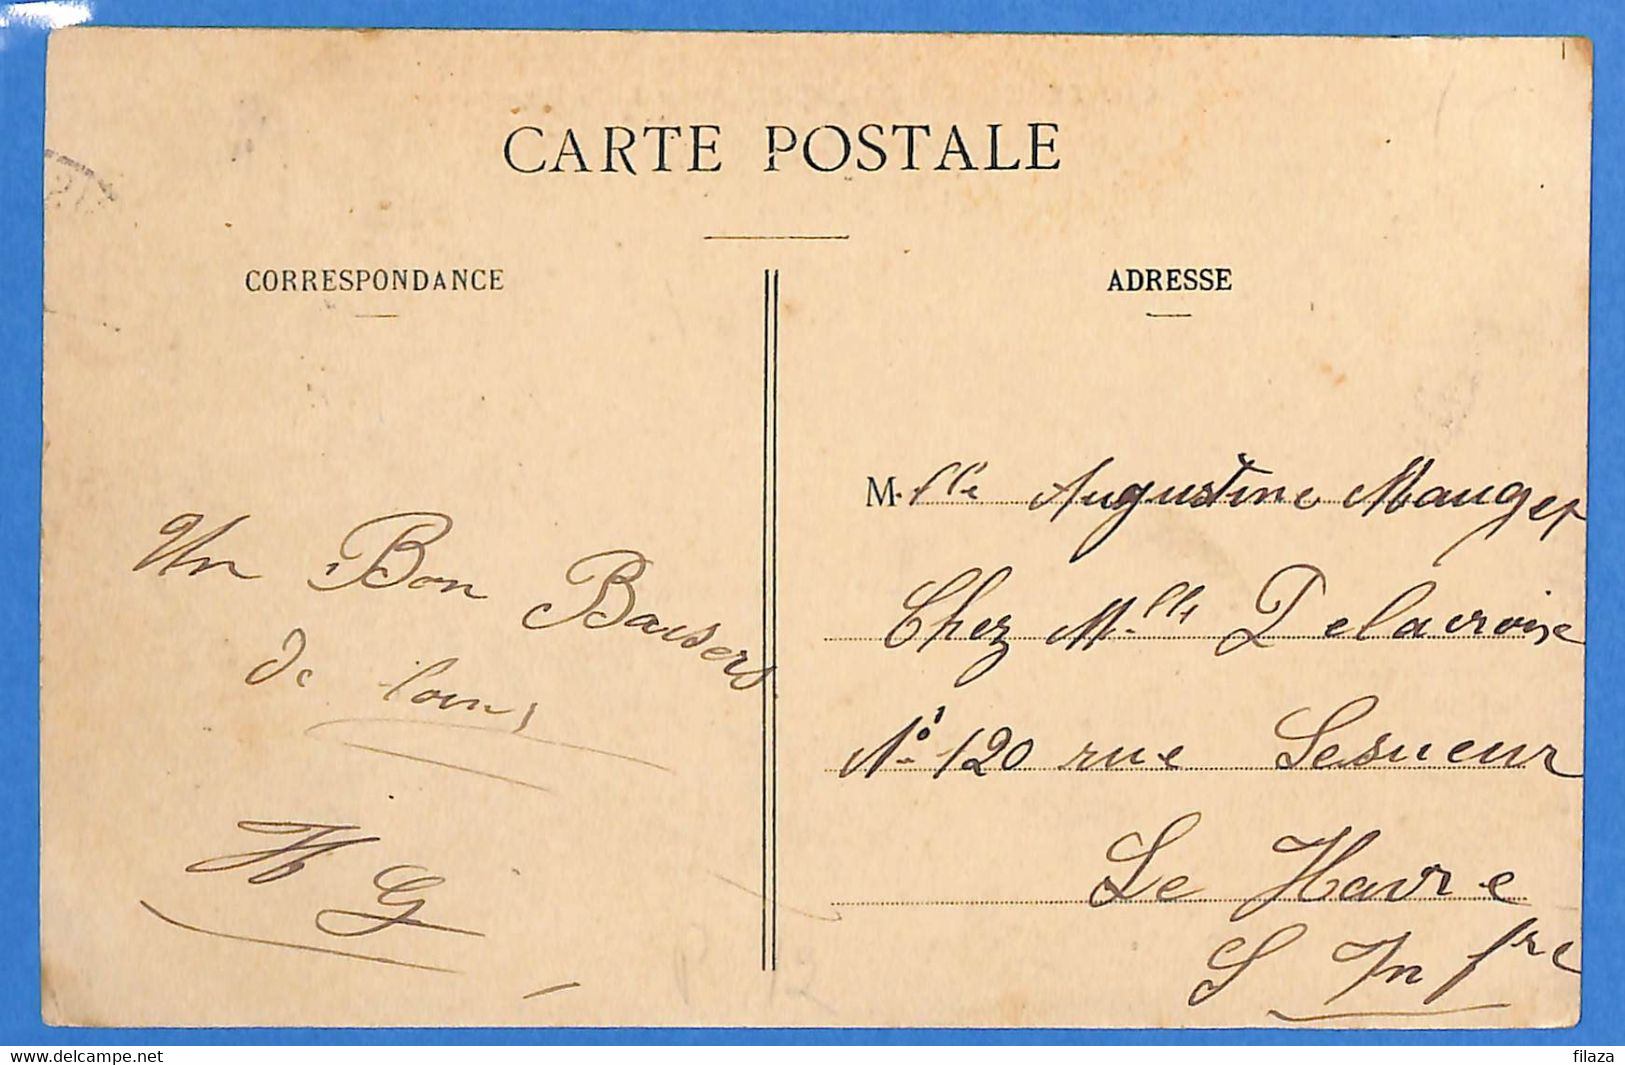 CARTE POSTALE
CORRESPONDANCE
ADRESSE
Un Bon Baisers
de loins
H G
M.lle Augustine Mauger
Chez M.lle Delacroix
N° 120 rue Lesueur
Le Havre
S Infre
www.delcampe.net
filaza